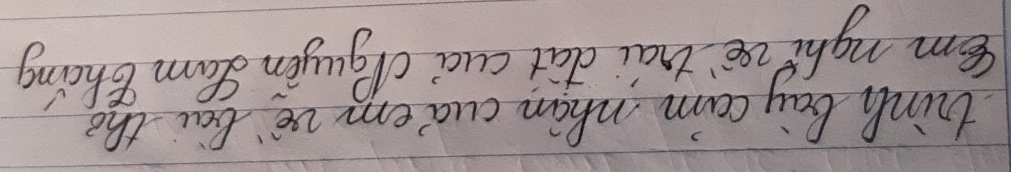 trình bày cảm nhận của em về bài thơ
Em nghĩ về trái đất của Nguyễn Lam Thắng